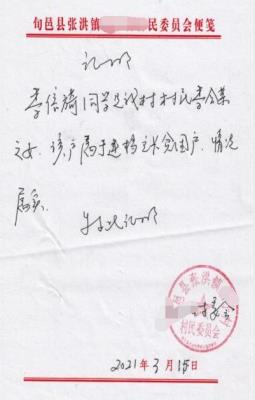 旬邑县张洪镇 民委员会便笺
证明
李信琦同学是我村村民李
之女，该户属于建档立卡贫困户，情况
属实。
特此证明
邑县张洪镇
村民委员会
2021年3月15日